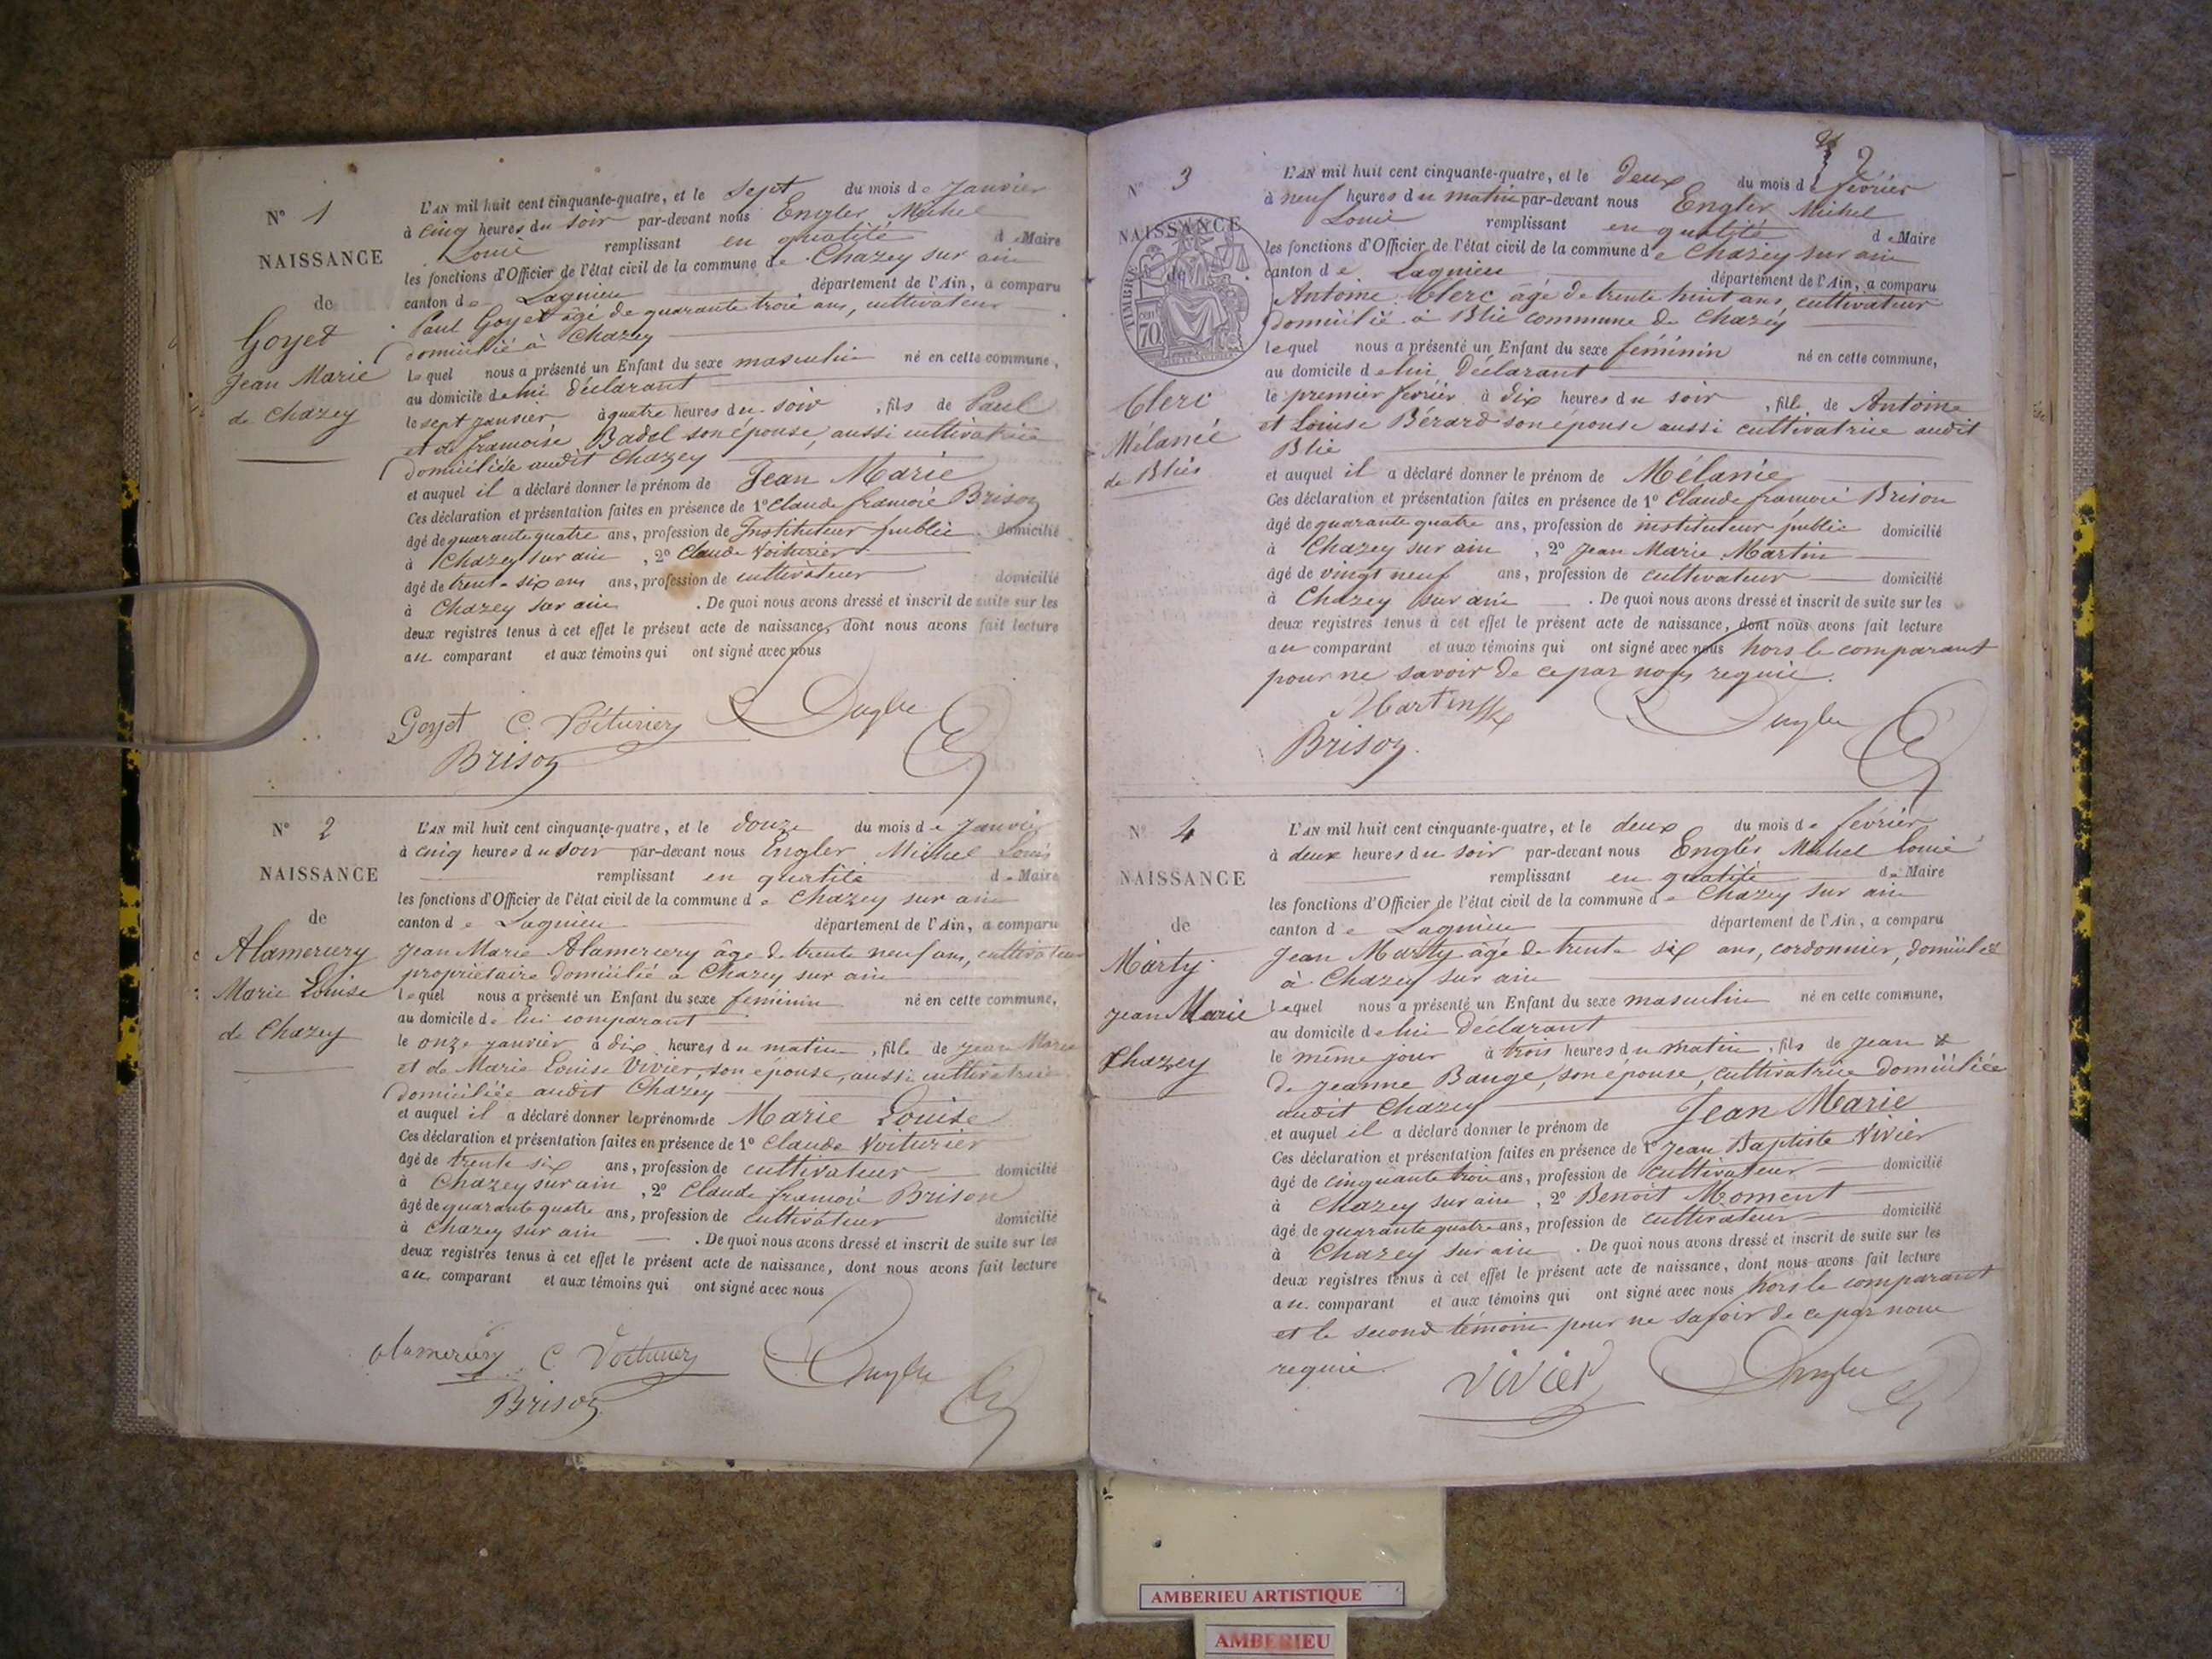 N° 1
NAISSANCE
de
Goyet
Jean Marie
de Chazey
L'AN mil huit cent cinquante-quatre, et le sept du mois de Janvier
à cinq heures du soir par-devant nous Engler Michel
Louis remplissant en qualité de Maire
les fonctions d'Officier de l'état civil de la commune de Chazey sur ain
canton de Lagnieu département de l'Ain, a comparu
Paul Goyet âgé de quarante trois ans, cultivateur
domicilié à Chazey
lequel nous a présenté un Enfant du sexe masculin né en cette commune,
au domicile de lui déclarant
le sept janvier à quatre heures du soir, fils de Paul
et de françoise Badel son épouse, aussi cultivatrice
domiciliée audit Chazey
et auquel il a déclaré donner le prénom de Jean Marie
Ces déclaration et présentation faites en présence de 1° Claude françois Brison
âgé de quarante quatre ans, profession de Instituteur public domicilié
à Chazey sur ain, 2° Claude Voiturier
âgé de trente six ans ans, profession de cultivateur domicilié
à Chazey sur ain . De quoi nous avons dressé et inscrit de suite sur les
deux registres tenus à cet effet le présent acte de naissance, dont nous avons fait lecture
au comparant et aux témoins qui ont signé avec nous
Goyet C. Voiturier
Brison
N° 2
NAISSANCE
de
Alamercery
Marie Louise
de Chazey
L'AN mil huit cent cinquante-quatre, et le douze du mois de Janvier
à cinq heures du soir par-devant nous Engler Michel Louis
remplissant en qualité de Maire
les fonctions d'Officier de l'état civil de la commune de Chazey sur ain
canton de Lagnieu département de l'Ain, a comparu
Jean Marie Alamercery âgé de trente neuf ans, cultivateur
propriétaire domicilié à Chazey sur ain
lequel nous a présenté un Enfant du sexe feminin né en cette commune,
au domicile de lui comparant
le onze janvier à dix heures du matin, fille de Jean Marie
et de Marie Louise Vivier, son épouse, aussi cultivatrice
domiciliée audit Chazey
et auquel il a déclaré donner le prénom de Marie Louise
Ces déclaration et présentation faites en présence de 1° Claude Voiturier
âgé de trente six ans, profession de cultivateur domicilié
à Chazey sur ain, 2° Claude françois Brison
âgé de quarante quatre ans, profession de cultivateur domicilié
à Chazey sur ain . De quoi nous avons dressé et inscrit de suite sur les
deux registres tenus à cet effet le présent acte de naissance, dont nous avons fait lecture
au comparant et aux témoins qui ont signé avec nous
Alamercery C. Voiturier
Brison
2
N° 3
NAISSANCE
de
TIMBRE
70
Clerc
Mélanie
de Blies
L'AN mil huit cent cinquante-quatre, et le deux du mois de février
à neuf heures du matin par-devant nous Engler Michel
Louis remplissant en qualité de Maire
les fonctions d'Officier de l'état civil de la commune de Chazey sur ain
canton de Lagnieu département de l'Ain, a comparu
Antoine Clerc âgé de trente huit ans, cultivateur
domicilié à Blie commune de Chazey
lequel nous a présenté un Enfant du sexe féminin né en cette commune,
au domicile de lui Déclarant
le premier février à dix heures du soir, fille de Antoine
et Louise Bérard son épouse aussi cultivatrice audit
Blie
et auquel il a déclaré donner le prénom de Mélanie
Ces déclaration et présentation faites en présence de 1° Claude françois Brison
âgé de quarante quatre ans, profession de instituteur public domicilié
à Chazey sur ain, 2° Jean Marie Martin
âgé de vingt neuf ans, profession de cultivateur domicilié
à Chazey sur ain . De quoi nous avons dressé et inscrit de suite sur les
deux registres tenus à cet effet le présent acte de naissance, dont nous avons fait lecture
au comparant et aux témoins qui ont signé avec nous hors le comparant
pour ne savoir de ce par nous requis.
Martin
Brison
N° 4
NAISSANCE
de
Marty
Jean Marie
Chazey
L'AN mil huit cent cinquante-quatre, et le deux du mois de février
à deux heures du soir par-devant nous Engler Michel Louis
remplissant en qualité de Maire
les fonctions d'Officier de l'état civil de la commune de Chazey sur ain
canton de Lagnieu département de l'Ain, a comparu
Jean Marty âgé de trente six ans, cordonnier, domicilié
à Chazey sur ain
lequel nous a présenté un Enfant du sexe masculin né en cette commune,
au domicile de lui Déclarant
le même jour à trois heures du matin, fils de Jean &
de Jeanne Bauge, son épouse, cultivatrice domiciliée
audit Chazey
et auquel il a déclaré donner le prénom de Jean Marie
Ces déclaration et présentation faites en présence de 1° Jean Baptiste Vivier
âgé de cinquante trois ans, profession de cultivateur domicilié
à Chazey sur ain, 2° Benoit Moment
âgé de quarante quatre ans, profession de cultivateur domicilié
à Chazey sur ain . De quoi nous avons dressé et inscrit de suite sur les
deux registres tenus à cet effet le présent acte de naissance, dont nous avons fait lecture
au comparant et aux témoins qui ont signé avec nous hors le comparant
et le second témoin pour ne savoir de ce par nous
requis.
Vivier
AMBERIEU ARTISTIQUE
AMBERIEU